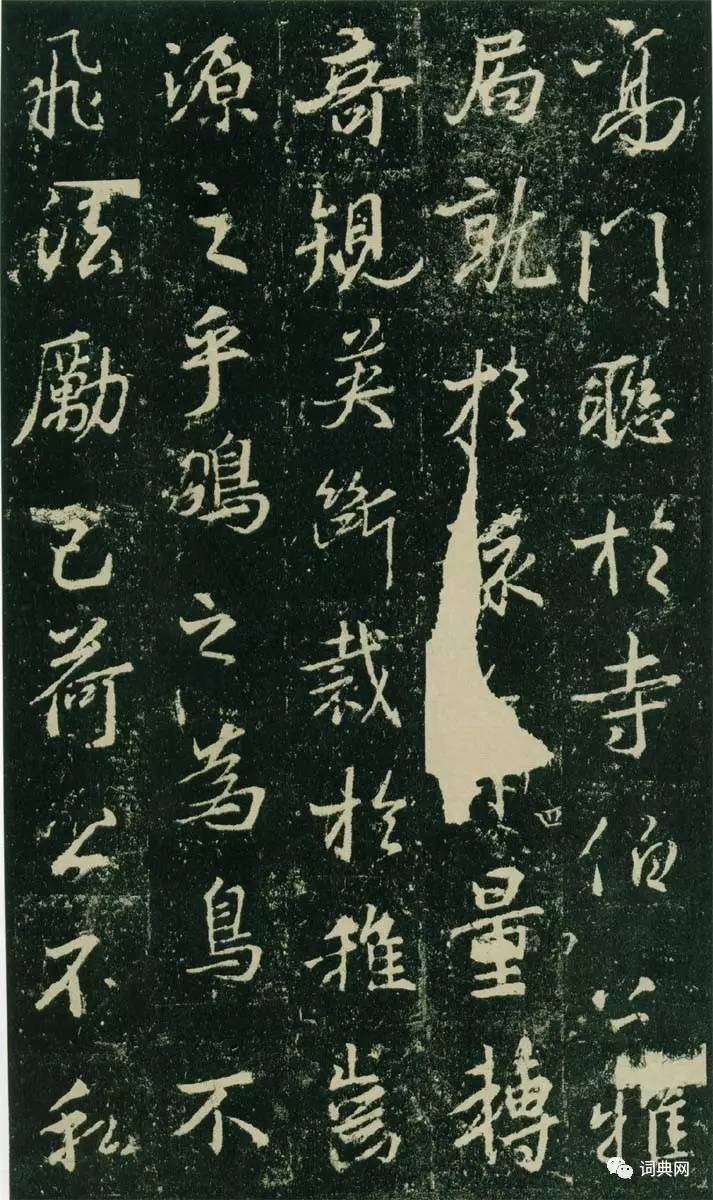 門聽於寺伯公雅
局就於量轉
奇規英斷裁於稚齒
源之乎之為鳥不
飛法勵已荷公不私
四
词典网